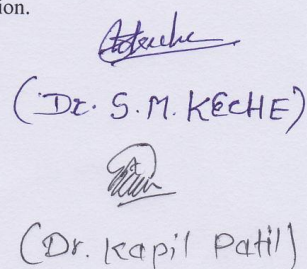 ion.
(Dr. S. M. KECHE)
(Dr. Kapil Patil)